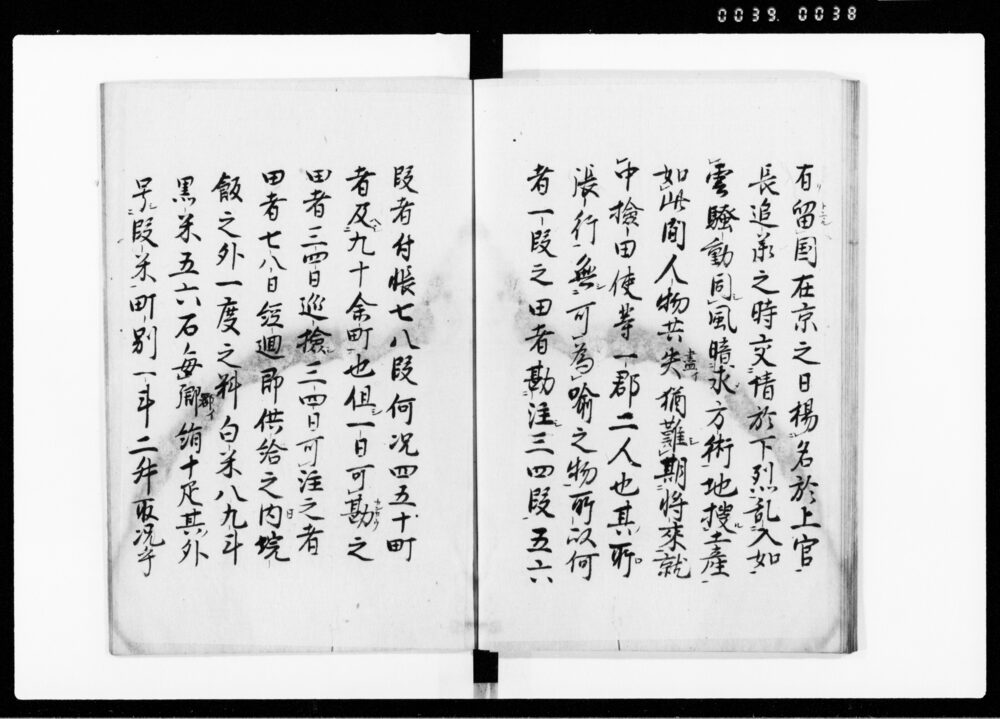 0039. 0038
有留国在京之日楊名於上官
長追亲之時交情於下烈乱入如
雲騒動同風晴求方術地捜土産
如此間人物共失猶難期将来就
盡イ
中撿田使等一郡二人也其所
張行無可為喩之物所以何
者一段之田者勘注三四段五六
段者付帳七八段何况四五十町
者及九十余町也但一日可勘之
田者三四日巡撿三四日可注之者
田者七八日經廻即供給之内垸
日
飯之外一度之料白米八九斗
黒米五六石毎郷絹十疋其外
郡イ
号段米町別一斗二升取况乎